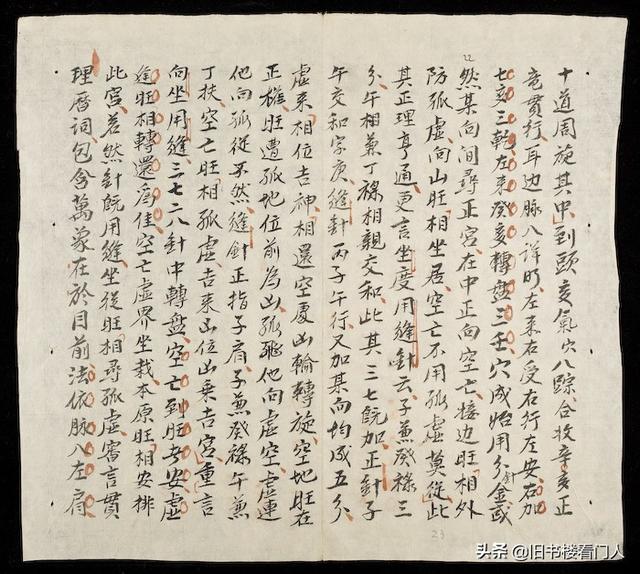 十道周旋其中到頭亥氣穴八踪合收辛亥正
竟貫行耳边脉八詳明左来右受右行左安右加
七亥三乾左来癸亥轉盘三壬穴成始用分金或
然某向间尋正宫在中正向空亡接边旺相外
防孤虚向山旺相坐居空亡不用孤虚莫從此
其正理亨通更言坐度用縫針云子兼癸祿三
分午相兼丁祿相親交和此其三七既加正針子
午交和字庚縫針丙子午行又加某向均成五分
虚来相位吉神相還空憂凶輪轉旋空地旺在
正權旺遭孤地位前為凶孤飛他向虚空虚連
他向孤從不然縫針正指子肩子兼癸祿午兼
丁扶空亡旺相孤虚吉来凶位凶乗吉宫重言
向坐用縫三七二八針中轉盘空亡到旺安虚
逢旺相轉還為佳空亡虚界坐栽本原旺相安排
此宫若然針既用縫坐從旺相尋孤虚審言貫
理曆词包含萬象在於目前法依脉八左肩
22
23
头条@旧书楼看门人